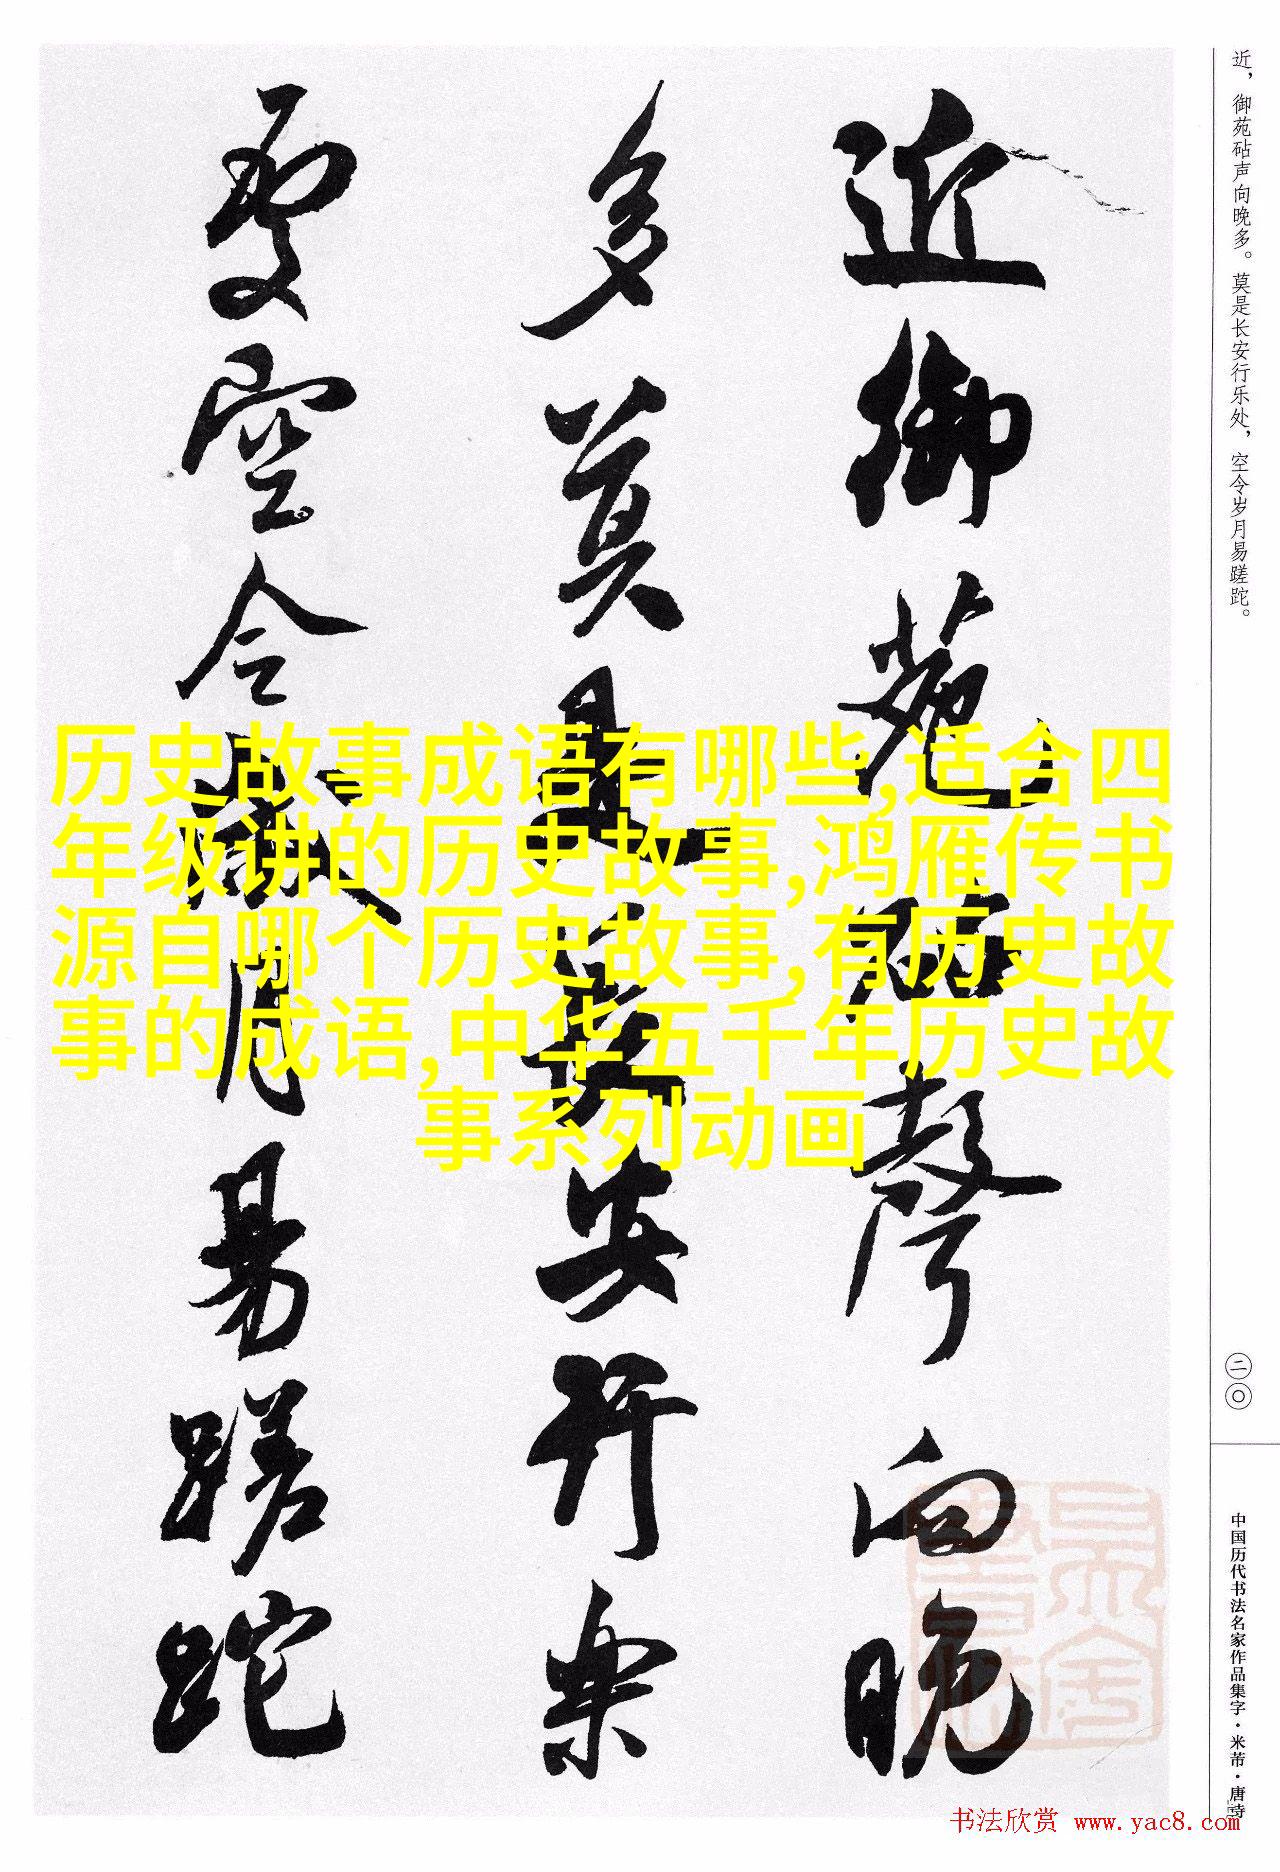 近御苑砧聲向晚
多莫是長安行樂
處空令歲月易蹉跎
近，御苑砧声向晚多。莫是长安行乐处，空令岁月易蹉跎。
二〇
中国历代书法名家作品集字·米芾·唐诗
历史故事成语有哪些,适合四
年级讲的历史故事,鸿雁传书
源自哪个历史故事,有历史故
事的成语,中华五千年历史故
事系列动画
书法欣赏 www.yac8.com